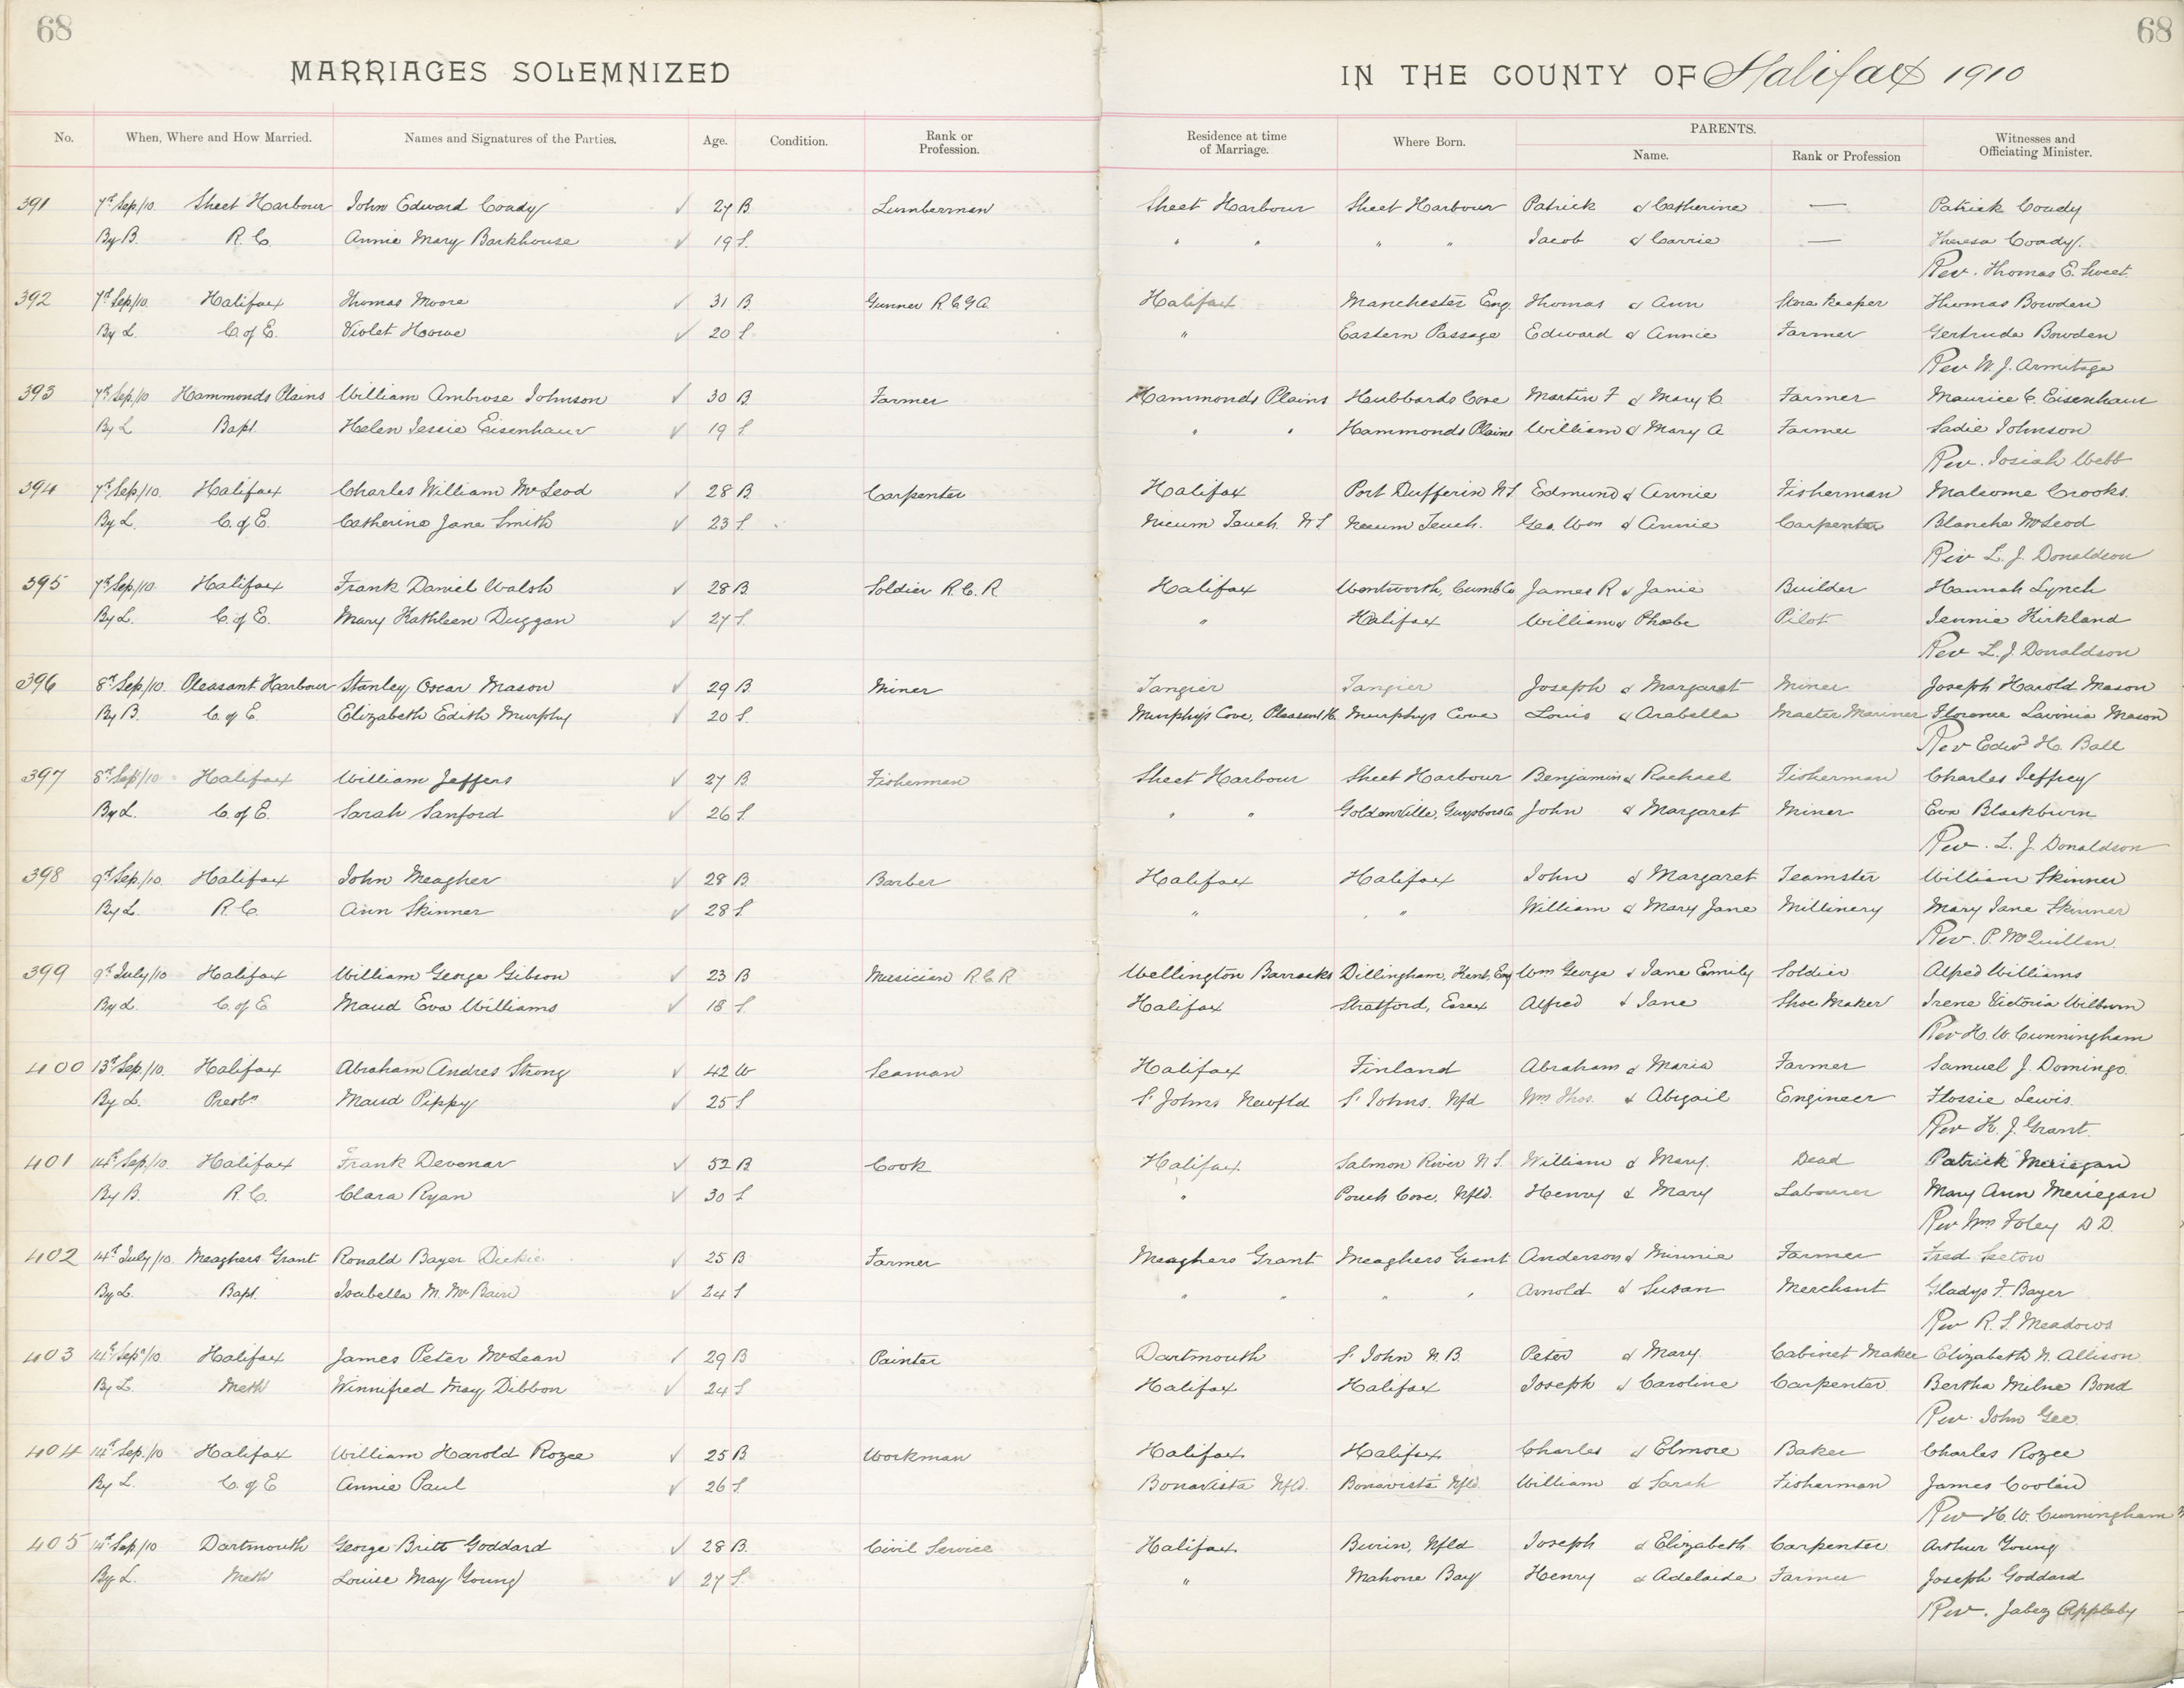 68
68
MARRIAGES SOLEMNIZED
IN THE COUNTY OF Halifax 1910
No. When, Where and How Married. Names and Signatures of the Parties. Age. Condition. Rank or Profession. Residence at time of Marriage. Where Born. PARENTS. Name. Rank or Profession Witnesses and Officiating Minister.
391 7th Sep./10. Sheet Harbour John Edward Coady ✓ 27 B. Lumberman Sheet Harbour Sheet Harbour Patrick & Catherine — Patrick Coady
By B. R. C. Annie Mary Barkhouse ✓ 19 S. " " " " Jacob & Carrie — Theresa Coady.
Rev. Thomas E. Sweet
392 7th Sep/10. Halifax Thomas Moore ✓ 31 B. Gunner R.C.G.A. Halifax Manchester Eng. Thomas & Ann Store keeper Thomas Bowden
By L. C. of E. Violet Howe ✓ 20 S. " Eastern Passage Edward & Annie Farmer Gertrude Bowden
Rev W. J. Armitage
393 7th Sep./10 Hammonds Plains William Ambrose Johnson ✓ 30 B. Farmer Hammonds Plains Hubbards Cove Martin F & Mary C. Farmer Maurice C. Eisenhaur
By L Bapt. Helen Jessie Eisenhaur ✓ 19 S. " " Hammonds Plains William & Mary A Farmer Sadie Johnson
Rev. Josiah Webb
394 7th Sep/10. Halifax Charles William McLeod ✓ 28 B. Carpenter Halifax Port Dufferin N S Edmund & Annie Fisherman Malcome Crooks.
By L. C. of E. Catherine Jane Smith ✓ 23 S. Necum Teuch. N S Necum Teuch. Geo. Wm & Annie Carpenter Blanche McLeod
Rev L. J. Donaldson
395 7th Sep./10. Halifax Frank Daniel Walsh ✓ 28 B. Soldier R. C. R. Halifax Wentworth, Cumb Co James R & Janie Builder Hannah Lynch
By L. C. of E. Mary Kathleen Duggan ✓ 27 S. " Halifax William & Phoebe Pilot Jennie Kirkland
Rev L. J. Donaldson
396 8th Sep/10. Pleasant Harbour Stanley Oscar Mason ✓ 29 B. Miner Tangier Tangier Joseph & Margaret Miner Joseph Harold Mason
By B. C. of E. Elizabeth Edith Murphy ✓ 20 S. Murphy's Cove, Pleasant H. Murphys Cove Louis & Arabella Master Mariner Florence Lavinia Mason
Rev Edwd H. Ball
397 8th Sep/10 Halifax William Jeffers ✓ 27 B. Fisherman Sheet Harbour Sheet Harbour Benjamin & Rachael Fisherman Charles Jeffrey
By L. C. of E. Sarah Sanford ✓ 26 S. " " Goldenville, Guysboro Co John & Margaret Miner Eva Blackburn
Rev. L. J. Donaldson
398 9th Sep./10. Halifax John Meagher ✓ 29 B. Barber Halifax Halifax John & Margaret Teamster William Skinner
By L. R. C. Ann Skinner ✓ 28 S. " " William & Mary Jane Millinery Mary Jane Skinner
Rev. P. McQuillan.
399 9th July/10 Halifax William George Gibson ✓ 23 B Musician R C R Wellington Barracks Dillingham, Kent, Eng Wm George & Jane Emily Soldier Alfred Williams
By L. C. of E Maud Eva Williams ✓ 18 S. Halifax Stratford, Essex Alfred & Jane Shoe Maker Irene Victoria Wilburn
Rev H. W. Cunningham
400 13th Sep./10. Halifax Abraham Andres Strong ✓ 42 W Seaman Halifax Finland Abraham & Maria Farmer Samuel J. Domingo.
By L. Presbn Maud Pippy ✓ 25 S. St Johns Newfld St Johns. Nfd Wm Thos. & Abigail Engineer Flossie Lewis.
Rev H. J. Grant.
401 14th Sep/10. Halifax Frank Devenar ✓ 52 B Cook Halifax Salmon River N S. William & Mary. Dead Patrick Meriegan
By B. R. C. Clara Ryan ✓ 30 S " Pouch Cove, Nfld. Henry & Mary Labourer Mary Ann Meriegan
Rev Wm Foley D D.
402 14th July/10. Meaghers Grant Ronald Bayer Dickie ✓ 25 B Farmer Meaghers Grant Meaghers Grant Anderson & Minnie Farmer Fred Seeton
By L. Bapt. Isabella M. McBain ✓ 24 S " " " " Arnold & Susan Merchant Gladys F. Bayer
Rev R. S. Meadows
403 14th Sep/10 Halifax James Peter McLean ✓ 29 B Painter Dartmouth St John N. B. Peter & Mary. Cabinet Maker Elizabeth N. Allison
By L. Meth Winnifred May Dibbon ✓ 24 S Halifax Halifax Joseph & Caroline Carpenter. Bertha Milne Bond
Rev. John Gee.
404 14th Sep./10 Halifax William Harold Rozee ✓ 25 B. Workman Halifax Halifax Charles & Elmore Baker Charles Rozee
By L. C. of E Annie Paul ✓ 26 S. Bonavista Nfld. Bonavista Nfld. William & Sarah Fisherman James Coolen
Rev H. W. Cunningham
405 14th Sep/10 Dartmouth George Britt Goddard ✓ 28 B. Civil Service Halifax Burin, Nfld Joseph & Elizabeth Carpenter Arthur Young
By L. Meth Louise May Young ✓ 27 S. " Mahone Bay Henry & Adelaide Farmer Joseph Goddard
Rev. Jabez Appleby